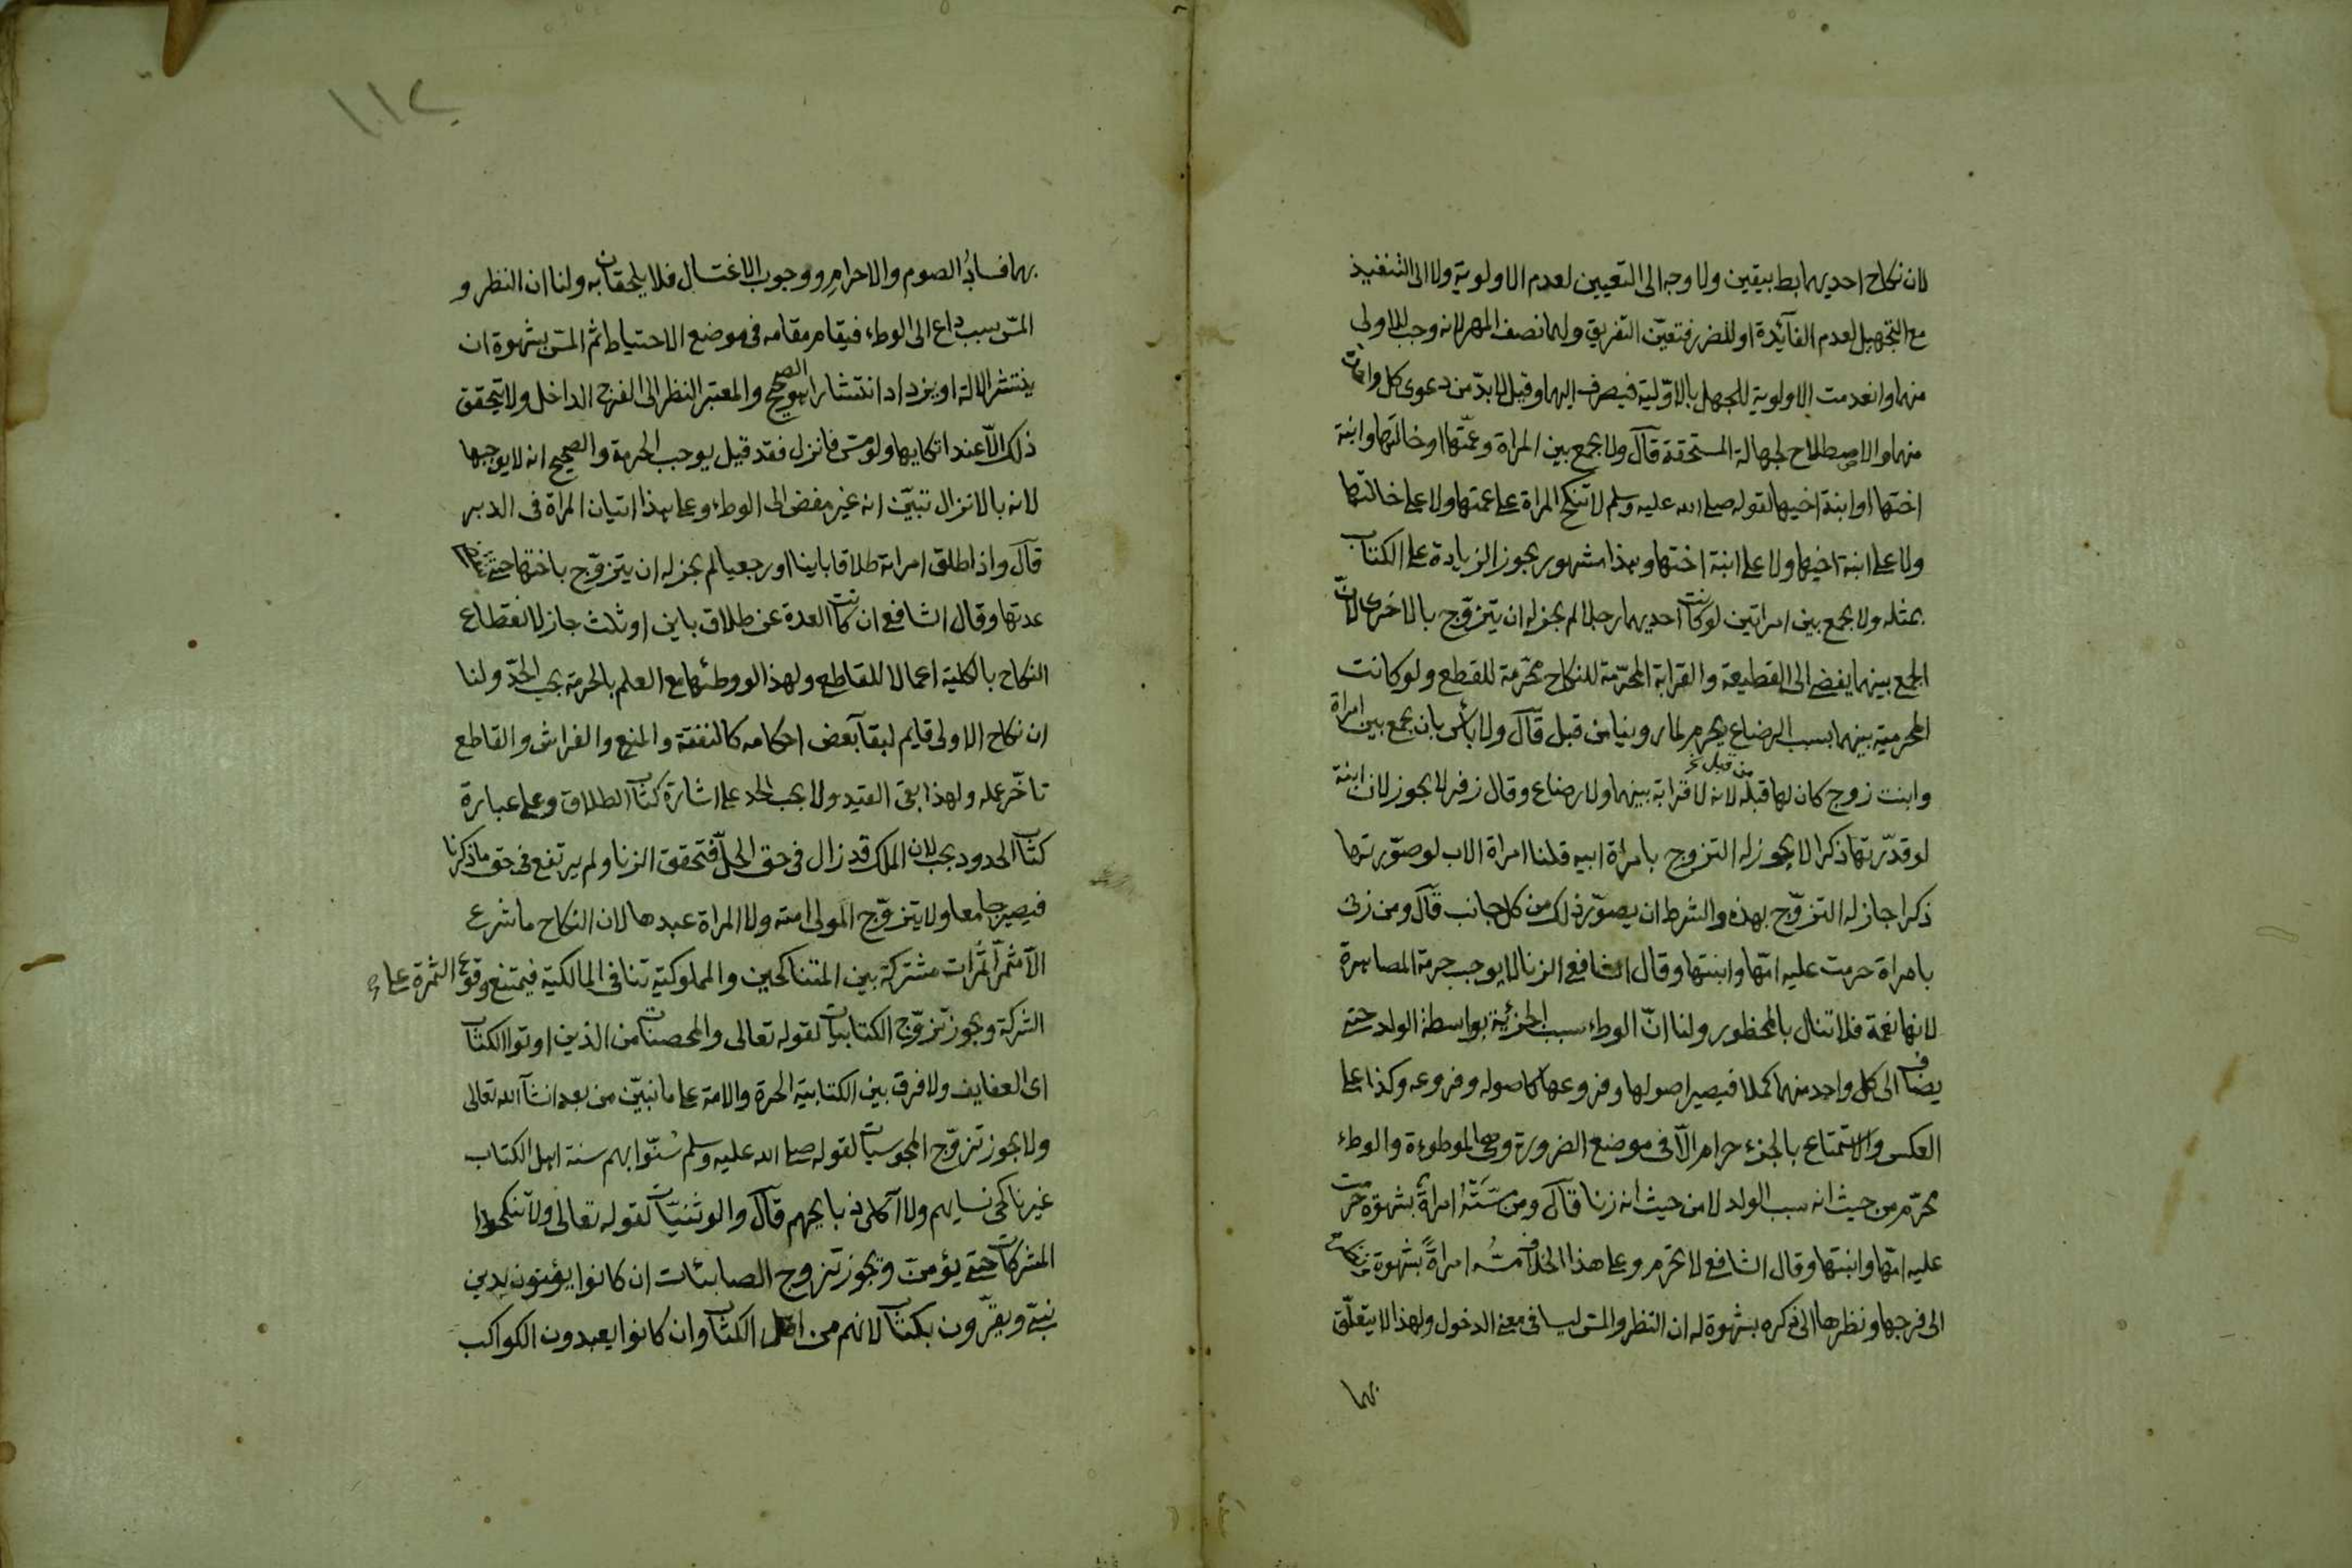 لان نكاح احديهما بط بيقين ولا وجه الى التعيين لعدم الاولوية ولا الى التنفيذ
مع التجهيل لعدم الفآئدة او للضرر فتعيّن التفريق ولهما نصف المهر لانه وجب للاولى
منهما وانعدمت الاولوية للجهل بالاوّلية فيصرف اليهما وقيل لا بدّ من دعوى كل واحدة
منهما والاصطلاح لجهالة المستحقة قآل ولا يجمع بين المراة وعمّتها او خالتها وابنة
اختها او ابنة اخيها لقوله صلى الله عليه وسلم لا تنكح المراة على عمتها ولا على خالتها
ولا على ابنة اخيها ولا على ابنة اختها وهذا مشهور يجوز الزيادة على الكتاب
بمثله ولا يجمع بين امراتين لو كانت احديهما رجلا لم يجز له ان يتزوّج بالاخرى لانّ
الجمع بينهما يفضى الى القطيعة والقرابة المحرّمة للنكاح محرّمة للقطع ولو كانت
المحرمية بينهما بسبب الرضاع يحرم لما روينا من قبل قآل ولا بأس بان يجمع بين امراة
وابنت زوج كان لها قبله من قبل لانه لا قرابة بينهما ولا رضاع وقال زفر لا يجوز لان ابنة
لو قدّرتها ذكرا لا يجوز له التزوج بامراة ابيه قلنا امراة الاب لو صوّرتها
ذكرا جاز له التزوّج بهذه والشرط ان يصوّر ذلك من كل جانب قآل ومن زنى
بامراة حرمت عليه امّها وابنتها وقال الشافعى الزنا لا يوجب حرمة المصاهرة
لانها نعمة فلا تنال بالمحظور ولنا انّ الوطاء سبب الجزئية بواسطة الولد حتى
يضاف الى كل واحد منهما كملا فيصير اصولها وفروعها كاصوله وفروعه وكذا على
العكس والاستمتاع بالجزء حرام الّا فى موضع الضرورة وهى الموطوءة والوطاء
محرّم من حيث انه سبب الولد لا من حيث انه زنا قآل ومن مسّته امراة بشهوة حرمت
عليه امّها وابنتها وقال الشافعى لا يحرم وعلى هذا الخلاف مسّه امراةً بشهوة ونظره
الى فرجها ونظرها الى ذكره بشهوة له ان النظر والمسّ ليسا فى معنى الدخول ولهذا لا يتعلّق
بهما
١١٢
بهما فسادُ الصوم والاحرام ووجوب الاغتسال فلا يلحقان به ولنا ان النظر و
المسّ سبب داع الى الوطاء فيقام مقامه فى موضع الاحتياط ثم المسّ بشهوة ان
ينتشر الالة او يزداد انتشارا هو الصحيح والمعتبر النظر الى الفرج الداخل ولا يتحقق
ذلك الّا عند اتكايها ولو مسّ فانزل فقد قيل يوجب الحرمة والصحيح انه لا يوجبها
لانه بالانزال تبيّن انه غير مفض الى الوطاء وعلى هذا اتيان المراة فى الدبر
قآل واذا طلق امراته طلاقا باينا او رجعيا لم يجز له ان يتزوّج باختها حتى تنقضى
عدتها وقال الشافعى ان كانت العدة عن طلاق باين او ثلث جاز لانقطاع
النكاح بالكلية اعمالا للقاطع ولهذا لو وطئها مع العلم بالحرمة يجب الحدّ ولنا
ان نكاح الاولى قايم لبقآ بعض احكامه كالنفقة والمنع والفراش والقاطع
تاخّر عمله ولهذا بقى القيد ولا يجب الحد على اشارة كتاب الطلاق وعلى عبارة
كتاب الحدود يجب لان الملك قد زال فى حق الحلّ فتحقق الزنا ولم يرتفع فى حق ما ذكرنا
فيصير جامعا ولا يتزوّج المولى امته ولا المراة عبدها لان النكاح ما شرع
الّا مثمرا ثمرات مشتركة بين المتناكحين والمملوكية تنافى المالكية فيمتنع وقوع الثمرة على
الشركة ويجوز تزوّج الكتابيات لقوله تعالى والمحصنات من الذين اوتوا الكتاب
اى العفايف ولا فرق بين الكتابية الحرة والامة على ما نبيّن من بعد ان شآ الله تعالى
ولا يجوز تزوّج المجوسيات لقوله صلى الله عليه وسلم سُنّوا بهم سنة اهل الكتاب
غير ناكحى نسايهم ولا آكلى ذبايحهم قآل والوثنيّات لقوله تعالى ولا تنكحوا
المشركات حتى يؤمنّ ويجوز تزوج الصابئات ان كانوا يؤمنون بدين
نبىّ ويقرّون بكتاب لانهم من اهل الكتاب وان كانوا يعبدون الكواكب